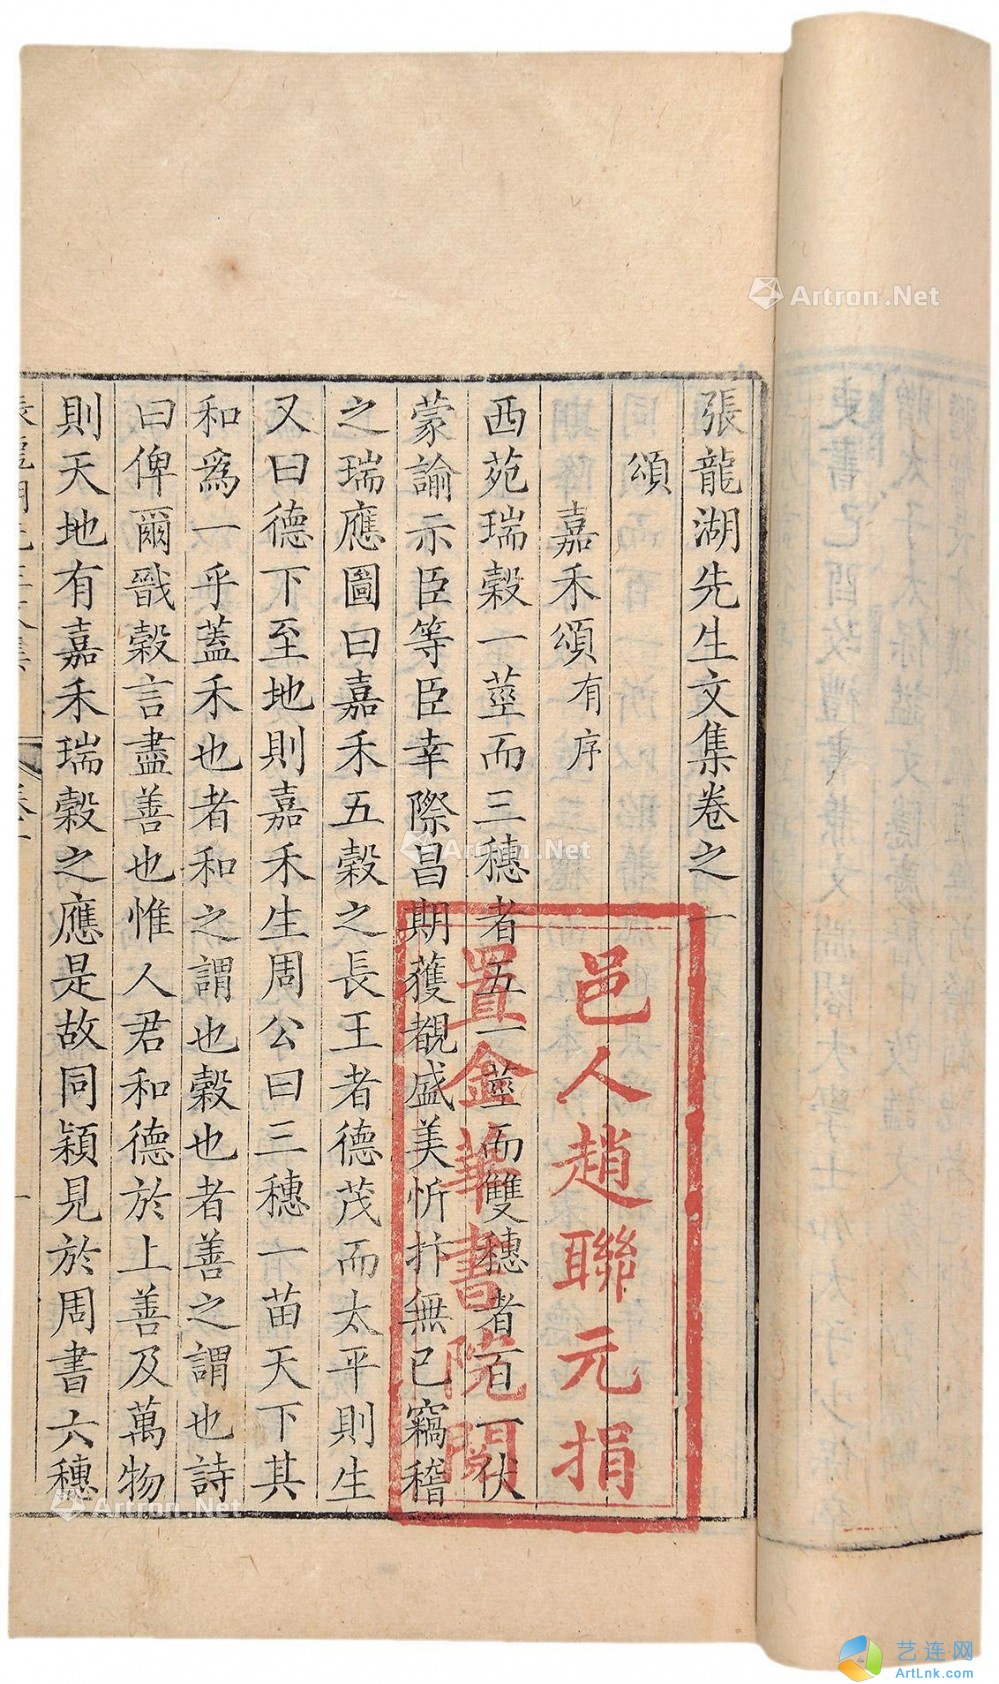 張龍湖先生文集卷之一
頌
嘉禾頌有序
西苑瑞穀一莖而三穗者五一莖而雙穗者百一伏
蒙諭示臣等臣幸際昌期獲覩盛美忻抃無已竊稽
之瑞應圖曰嘉禾五穀之長王者德茂而太平則生
又曰德下至地則嘉禾生周公曰三穗一苗天下其
和爲一乎蓋禾也者和之謂也穀也者善之謂也詩
曰俾爾戩穀言盡善也惟人君和德於上善及萬物
則天地有嘉禾瑞穀之應是故同穎見於周書六穗
邑人趙聯元捐
置金華書院閱
Artron.Net
Artron.Net
Artron.Net
艺连网
ArtLnk.com